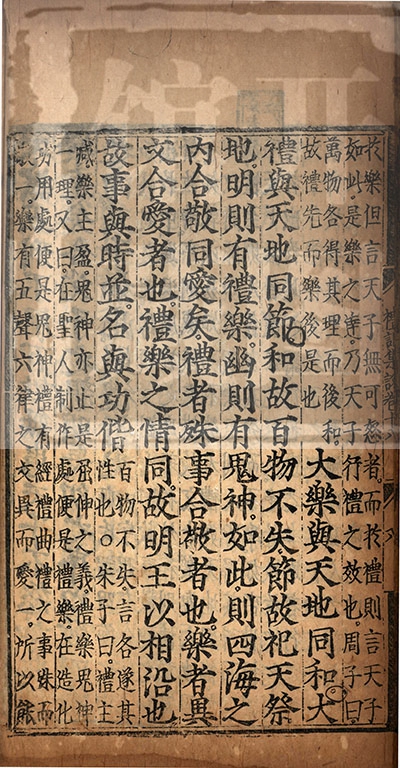 於樂但言天子無可怒者而於禮則言天子
如此是樂之達乃天子行禮之效也周子曰
萬物各得其理而後和
故禮先而樂後是也
大樂與天地同和大
禮與天地同節和故百物不失節故祀天祭
地明則有禮樂幽則有鬼神如此則四海之
內合敬同愛矣禮者殊事合敬者也樂者異
文合愛者也禮樂之情同故明王以相沿也
故事與時並名與功偕
百物不失言各遂其
性也○朱子曰禮主
減樂主盈鬼神亦止是屈伸之義禮樂鬼神
一理又曰在聖人制作處便是禮樂在造化
功用處便是鬼神禮有經禮曲禮之事殊而
一樂有五聲六律之文異而愛一所以能